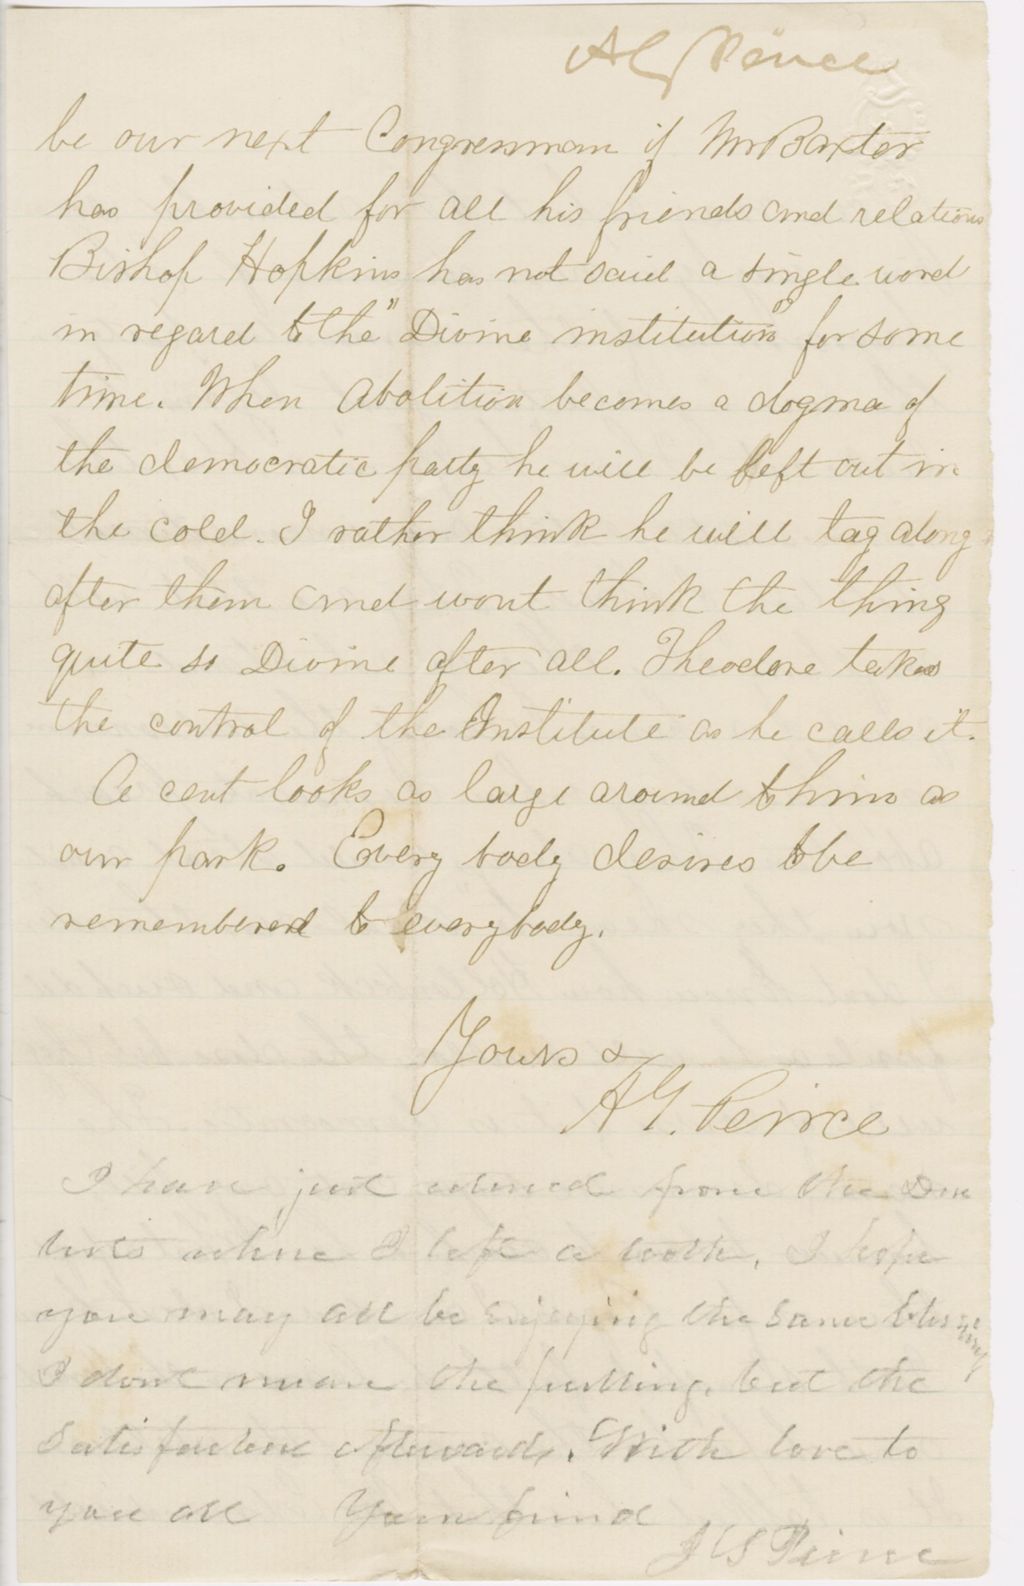 A G Peirce
be our next Congressman if Mr Baxter
has provided for all his friends and relations
Bishop Hopkins has not said a single word
in regard to the "Divine institution" for some
time. When Abolition becomes a dogma of
the democratic party he will be left out in
the cold. I rather think he will tag along
after them and wont think the thing
quite so Divine after all. Theodore takes
the control of the Institute as he calls it.
A cent looks as large around to him as
our park. Every body desires to be
remembered to everybody.
Yours &
A G. Peirce
I have just returned from the Den
tists where I left a tooth, I hope
you may all be enjoying the same blessing
I dont mean the pulling, but the
satisfaction afterwards. With love to
you all Your friend
Peirce